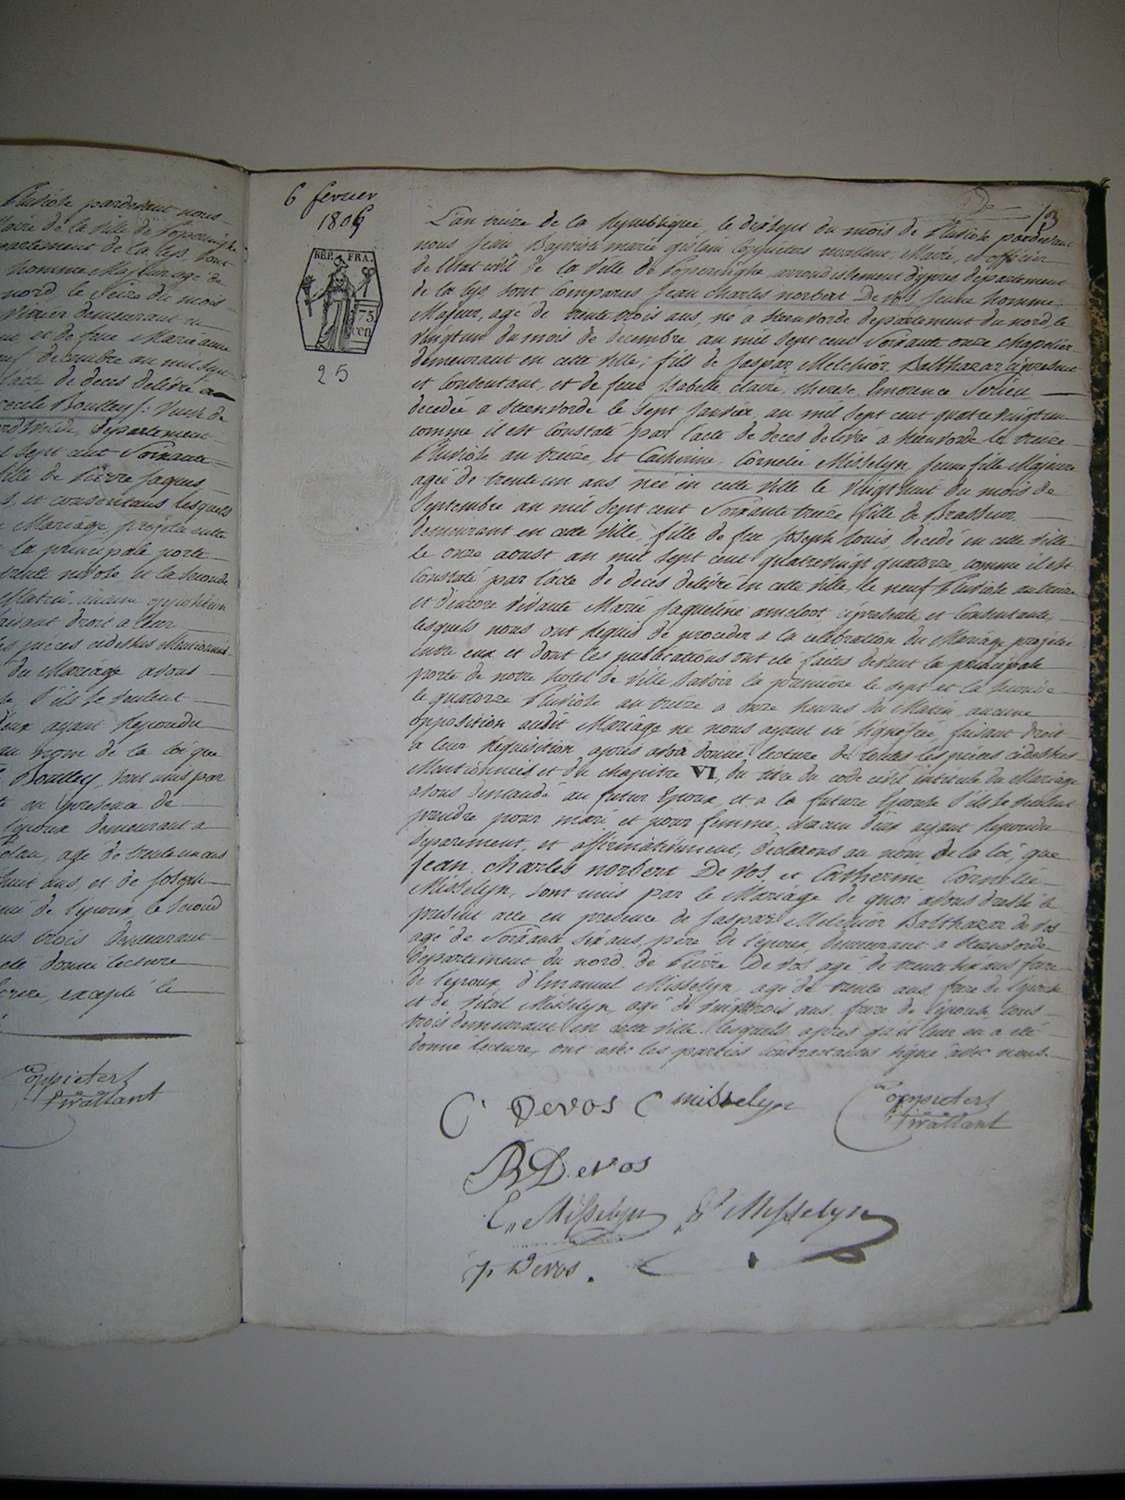 Pluviose pardevant nous
Maire de la ville de Poperinghe
departement de la Lys, sont
homme Majeur agé de
nord, le Seize du mois
demeurant en
et de feue Marie anne
decembre au mil Sept
l'acte de deces delivré a
Cecile Boulley
departement
Sept cent Soixante
fille de Pierre Jaques
et consentans lesquels
Mariage projetté entre
la principale porte
trente nivose et la Seconde
aucune opposition
faisant droit a leur
pieces cidessus Mentionnés
du Mariage avons
S'ils se veulent
d'eux ayant repondu
au nom de la loi que
Boulley, sont unis par
en presence de
l'epoux demeurant a
agé de trente un ans
huit ans, et de Joseph
de l'epoux, le Second
trois demeurant
eté donné lecture
excepté le
Coppieters
t'Wallant
6 fevrier
1805
REP. FRA.
75
cen
25
De
13
L'an treize de la Republique, le dixsept du mois de Pluviose pardevant
nous Jean Baptiste marie gislain Coppieters twallant, Maire, et officier
de l'etat civil de la ville de Poperinghe, arrondissement d'ypres departement
de la Lys sont Comparus Jean Charles norbert De vos Jeune homme
Majeur, agé de trente trois ans, né a Steenvorde departement du nord, le
vingtun du mois de decembre au mil sept cent Soixante onze chapelier
demeurant en cette ville; fils de Jaspar Melchior Balthazar ci present
et Consentant, et de feue Isabelle Claire therese
decedée a Steenvorde le Sept Janvier au mil Sept cent quatre vingt un
comme il est Constaté par l'acte de deces delivré a Steenvorde le treize
Pluviose an treize, et Catherine Cornelie Misselyn Jeune fille Majeure
agée de trente un ans née en cette ville le vingt huit du mois de
Septembre au mil Sept cent Soixante treize fille de Brasseur
demeurant en cette ville, fille de feu Joseph Louis decedé en cette ville
le onze aoust au mil Sept cent quatrevingt quatorze, comme il est
Constaté par l'acte de decés delivré en cette ville, le neuf Pluviose an treize
et d'encore vivante Marie Jaqueline ameloot ci presente et Consentante
lesquels nous ont requis de proceder a la celebration du Mariage projetté
entre eux et dont les publications ont eté faites devant la principale
porte de notre hotel de Ville savoir la premiere le Sept et la Seconde
le quatorze Pluviose an treize a onze heures du Matin, aucune
opposition audit Mariage ne nous ayant eté signifiée, faisant droit
a leur requisition, après avoir donné lecture de toutes les pieces cidessus
Mentionnées et du chapitre VI, du titre du code civil intitulé du Mariage
avons demandé au futur Epoux, et a la future Epouse S'ils se veulent
prendre pour mari et pour femme, chacun d'eux ayant repondu
Separement, et affirmativement, declarons au nom de la loi, que
Jean Charles norbert De vos, et Catherine Cornelie
Misselyn, sont unis par le Mariage de quoi avons dressé le
present acte en presence de Jaspar Melchior Balthazar de vos
agé de Soixante Six ans, père de l'epoux, demeurant a Steenvorde
departement du nord de Pierre De vos agé de trente Six ans frere
de l'epoux, d'Emanuel Misselyn agé de trente ans frere de l'epouse
et de Vital Misselyn, agé de vingttrois ans, frere de l'epouse tous
trois demeurant en cette ville lesquels, après qu'il leur en a eté
donné lecture, ont avec les parties Contractantes signé avec nous.
C Devos C Misselyn
Coppieters
t'Wallant
Devos
E Misselyn Misselyn
Devos